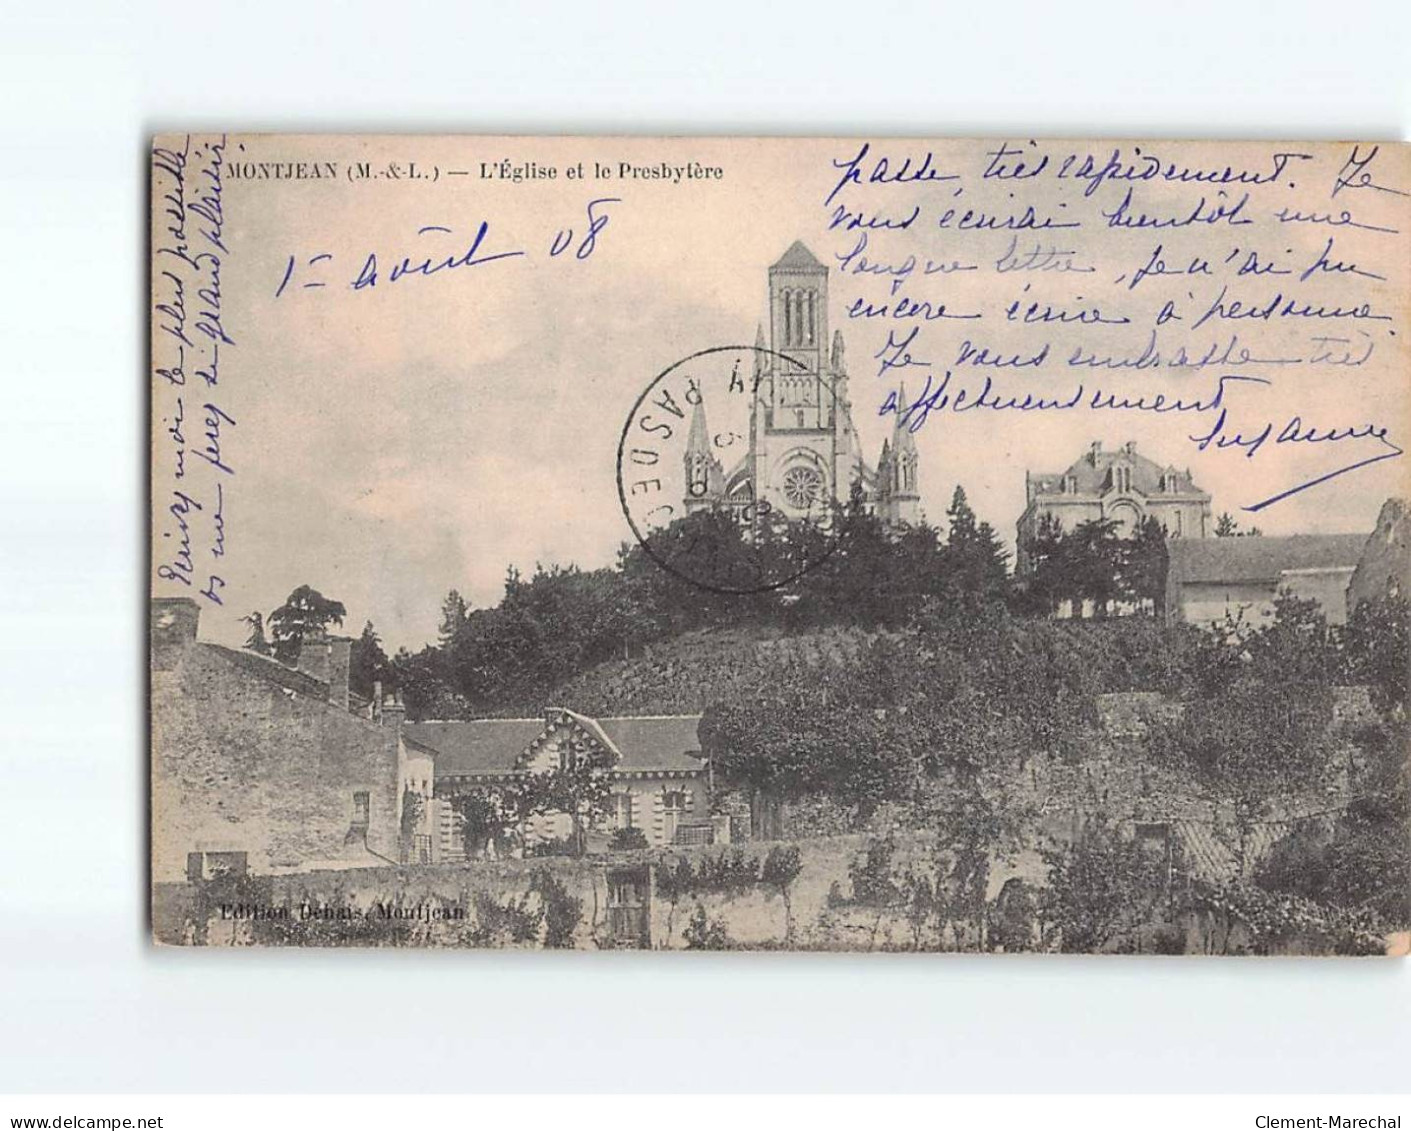 MONTJEAN (M.-&-L.) — L'Église et le Presbytère
1er août 08
passe très rapidement. Je
vous écrirai bientôt une
longue lettre, je n'ai pu
encore écrire à personne.
Je vous embrasse très
affectueusement
Suzanne
moi le plus possible
vs me ferez si grand plaisir
PAS DE C
Edition Dehais, Montjean
www.delcampe.net
Clement-Marechal